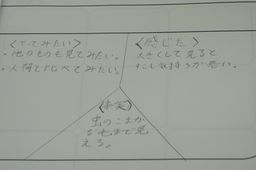 〈やってみたい〉
・他のものも見てみたい。
・人間とくらべてみたい。
〈感じた〉
大きくして見ると
すこし気持ちが悪い。
〈事実〉
虫のこまか
な毛まで見
える。